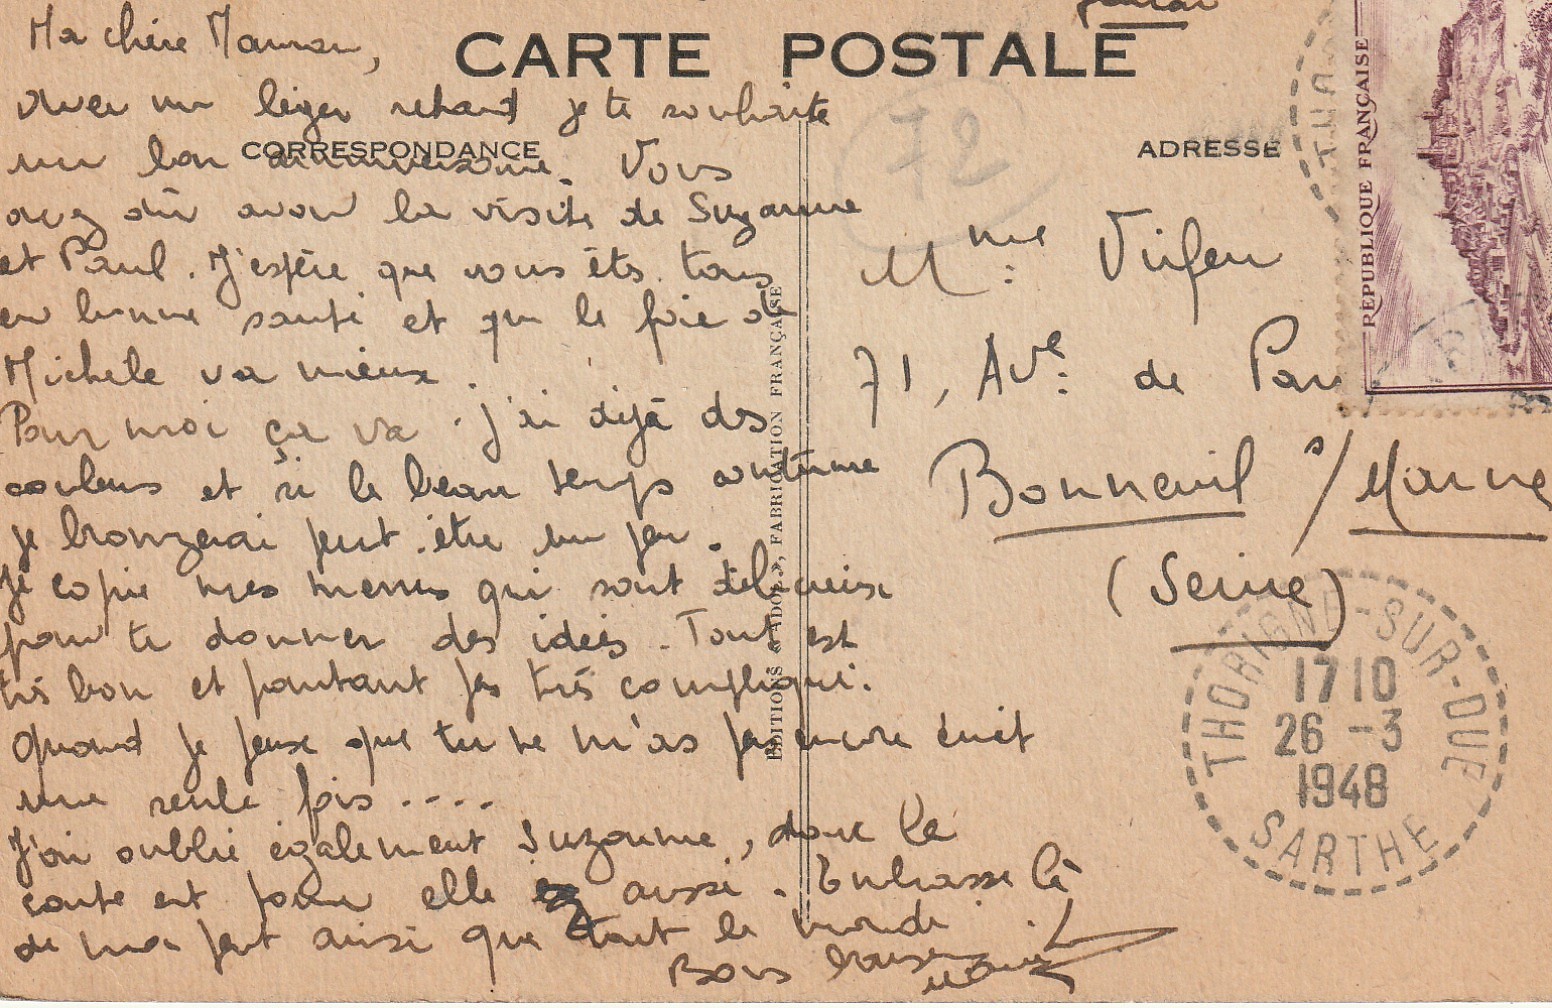 Ma chère Maman,
CARTE POSTALE
avec un léger retard je te souhaite
CORRESPONDANCE
un bon anniversaire. Vous
avez dû avoir la visite de Suzanne
et Paul. J'espère que vous êts tous
en bonne santé et que le foie de
Michele va mieux.
Pour moi ça va. J'ai déjà des
couleurs et si le beau temps continue
je bronzerai peut-être un peu.
Je copie mes menus qui sont délicieux
pour te donner des idées. Tout est
très bon et pourtant pas très compliqué.
Quand je pense que tu ne m'as pas encore écrit
une seule fois....
J'ai oublié également Suzanne, donc la
carte est pour elle aussi. Embrasse la
de ma part ainsi que tout le monde
Bons baisers
EDITIONS FABRICATION FRANÇAISE
72
ADRESSE
Mme:
71, Ave: de
Bonneuil s/ Marne
(Seine)
REPUBLIQUE FRANÇAISE
THORIGNE-SUR-DUE
1710
26 -3
1948
SARTHE